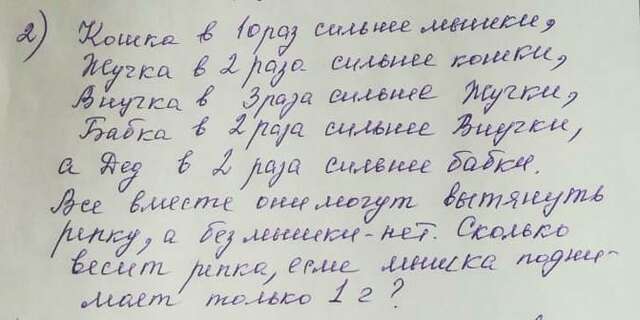 2) Кошка в 10 раз сильнее мышки,
Жучка в 2 раза сильнее кошки,
Внучка в 3 раза сильнее Жучки,
Бабка в 2 раза сильнее Внучки,
а Дед в 2 раза сильнее бабки.
Все вместе они могут вытянуть
репку, а без мышки - нет. Сколько
весит репка, если мышка подни-
мает только 1 г?